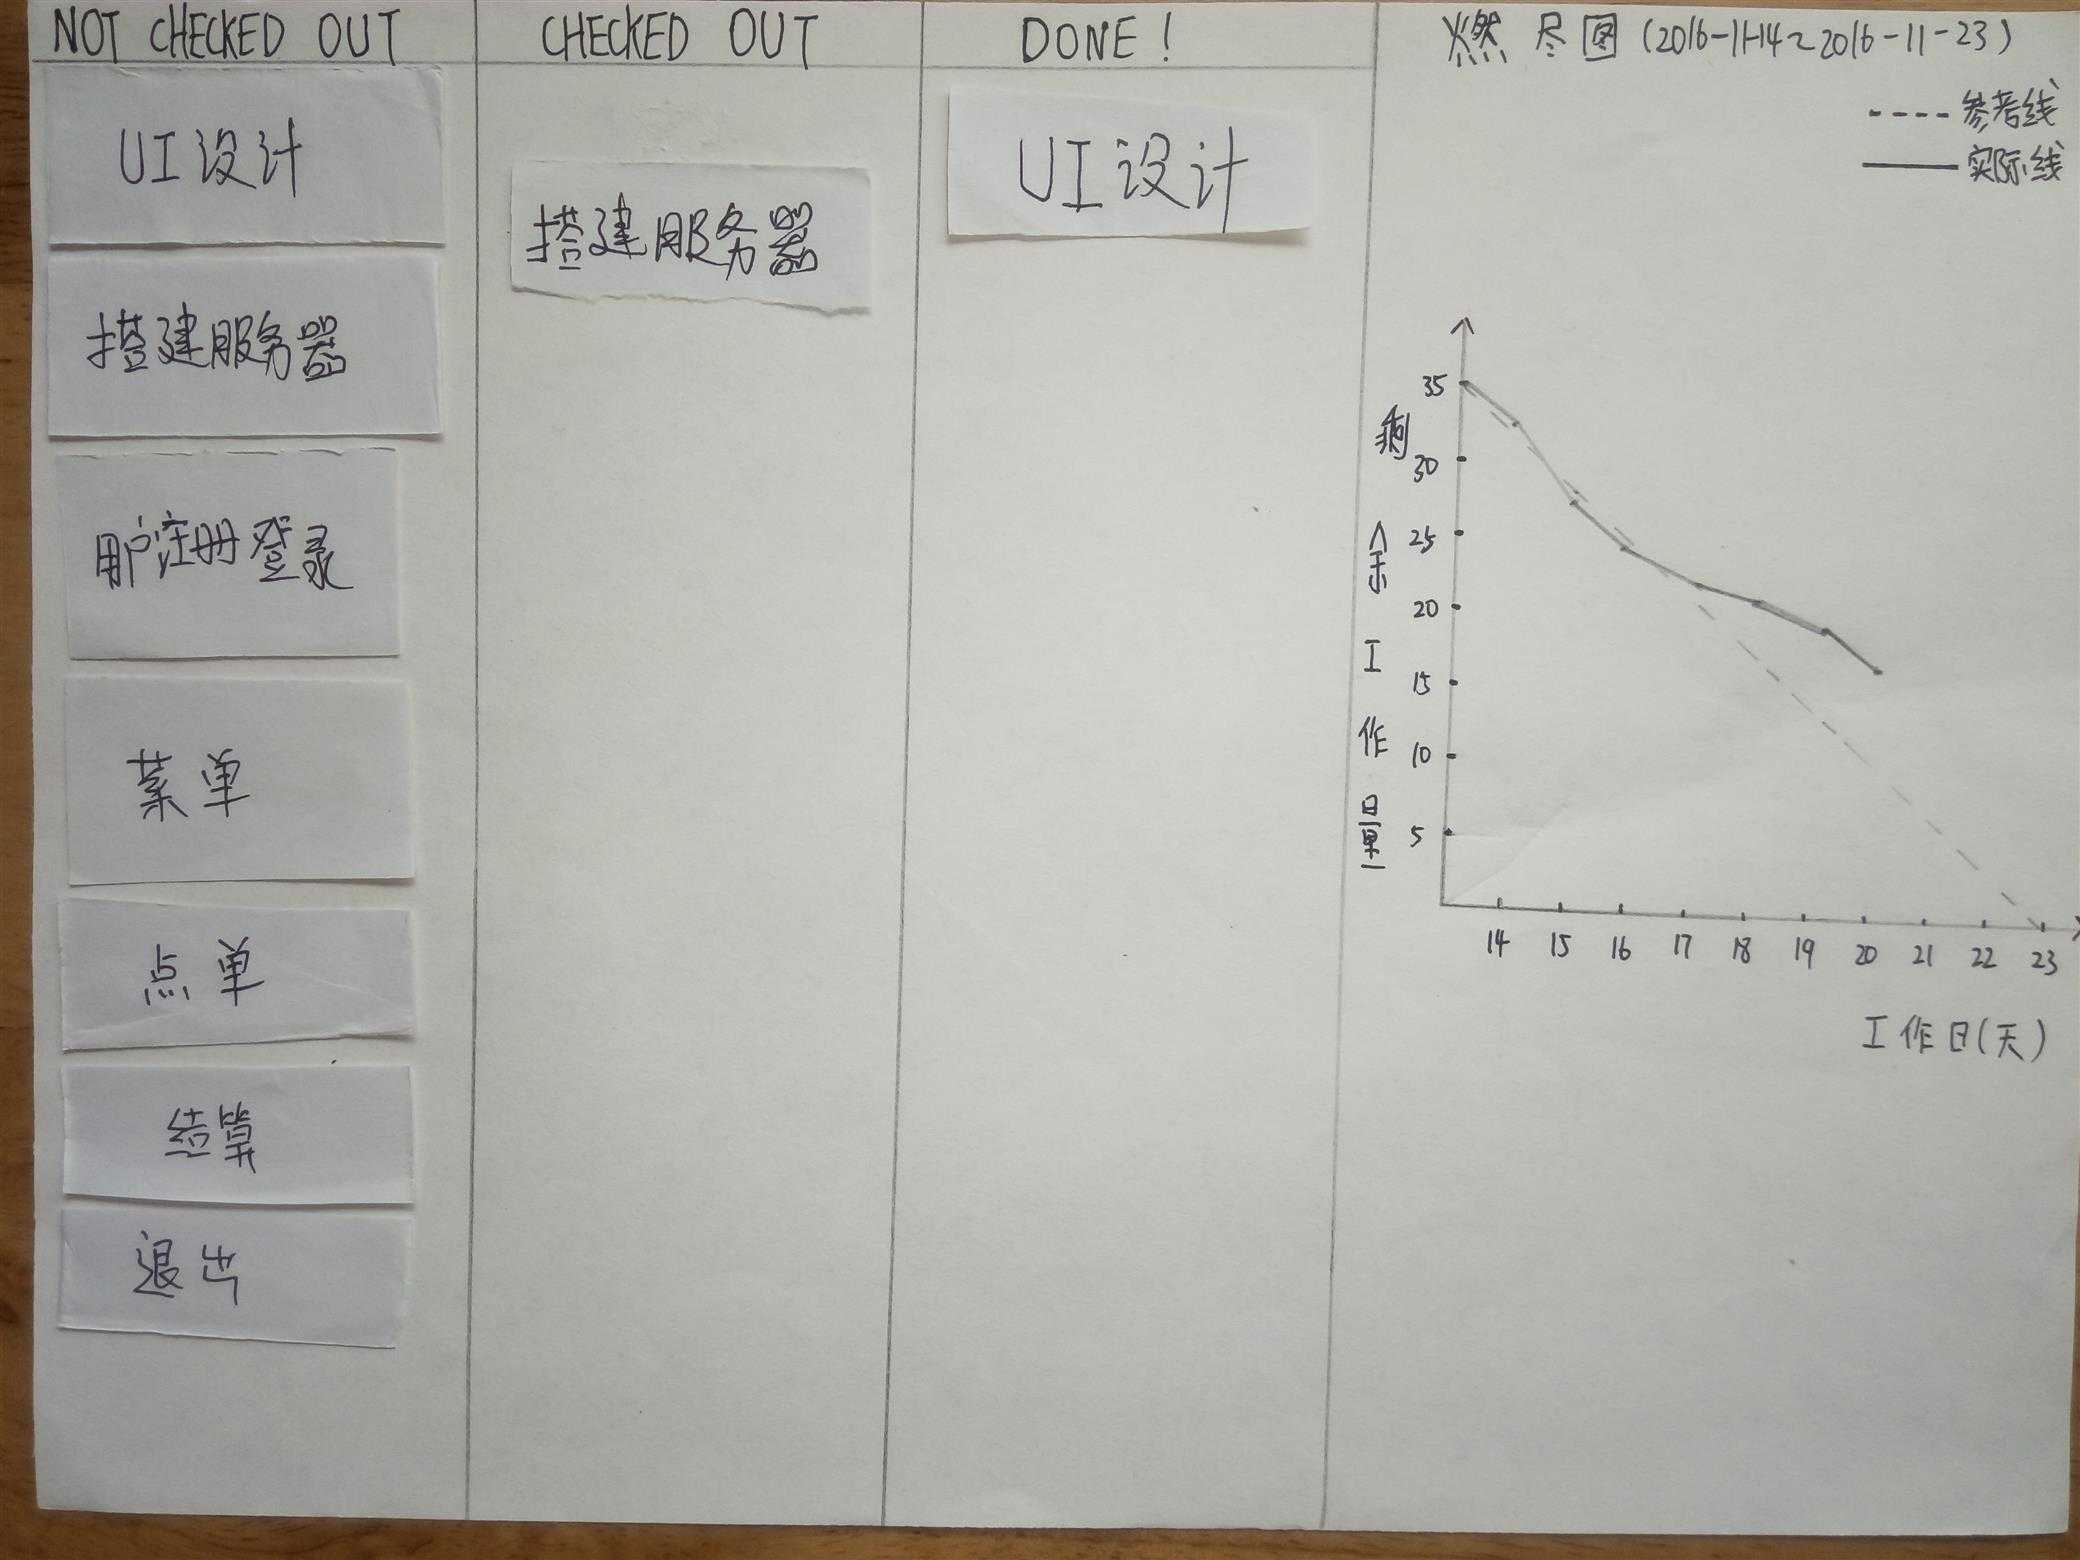 NOT CHECKED OUT
UI设计
搭建服务器
用户注册登录
菜单
点单
结算
退出
CHECKED OUT
搭建服务器
DONE!
UI设计
燃尽图(2016-11-14~2016-11-23)
参考线
实际线
剩余工作量
35
30
25
20
15
10
5
14 15 16 17 18 19 20 21 22 23
工作日(天)